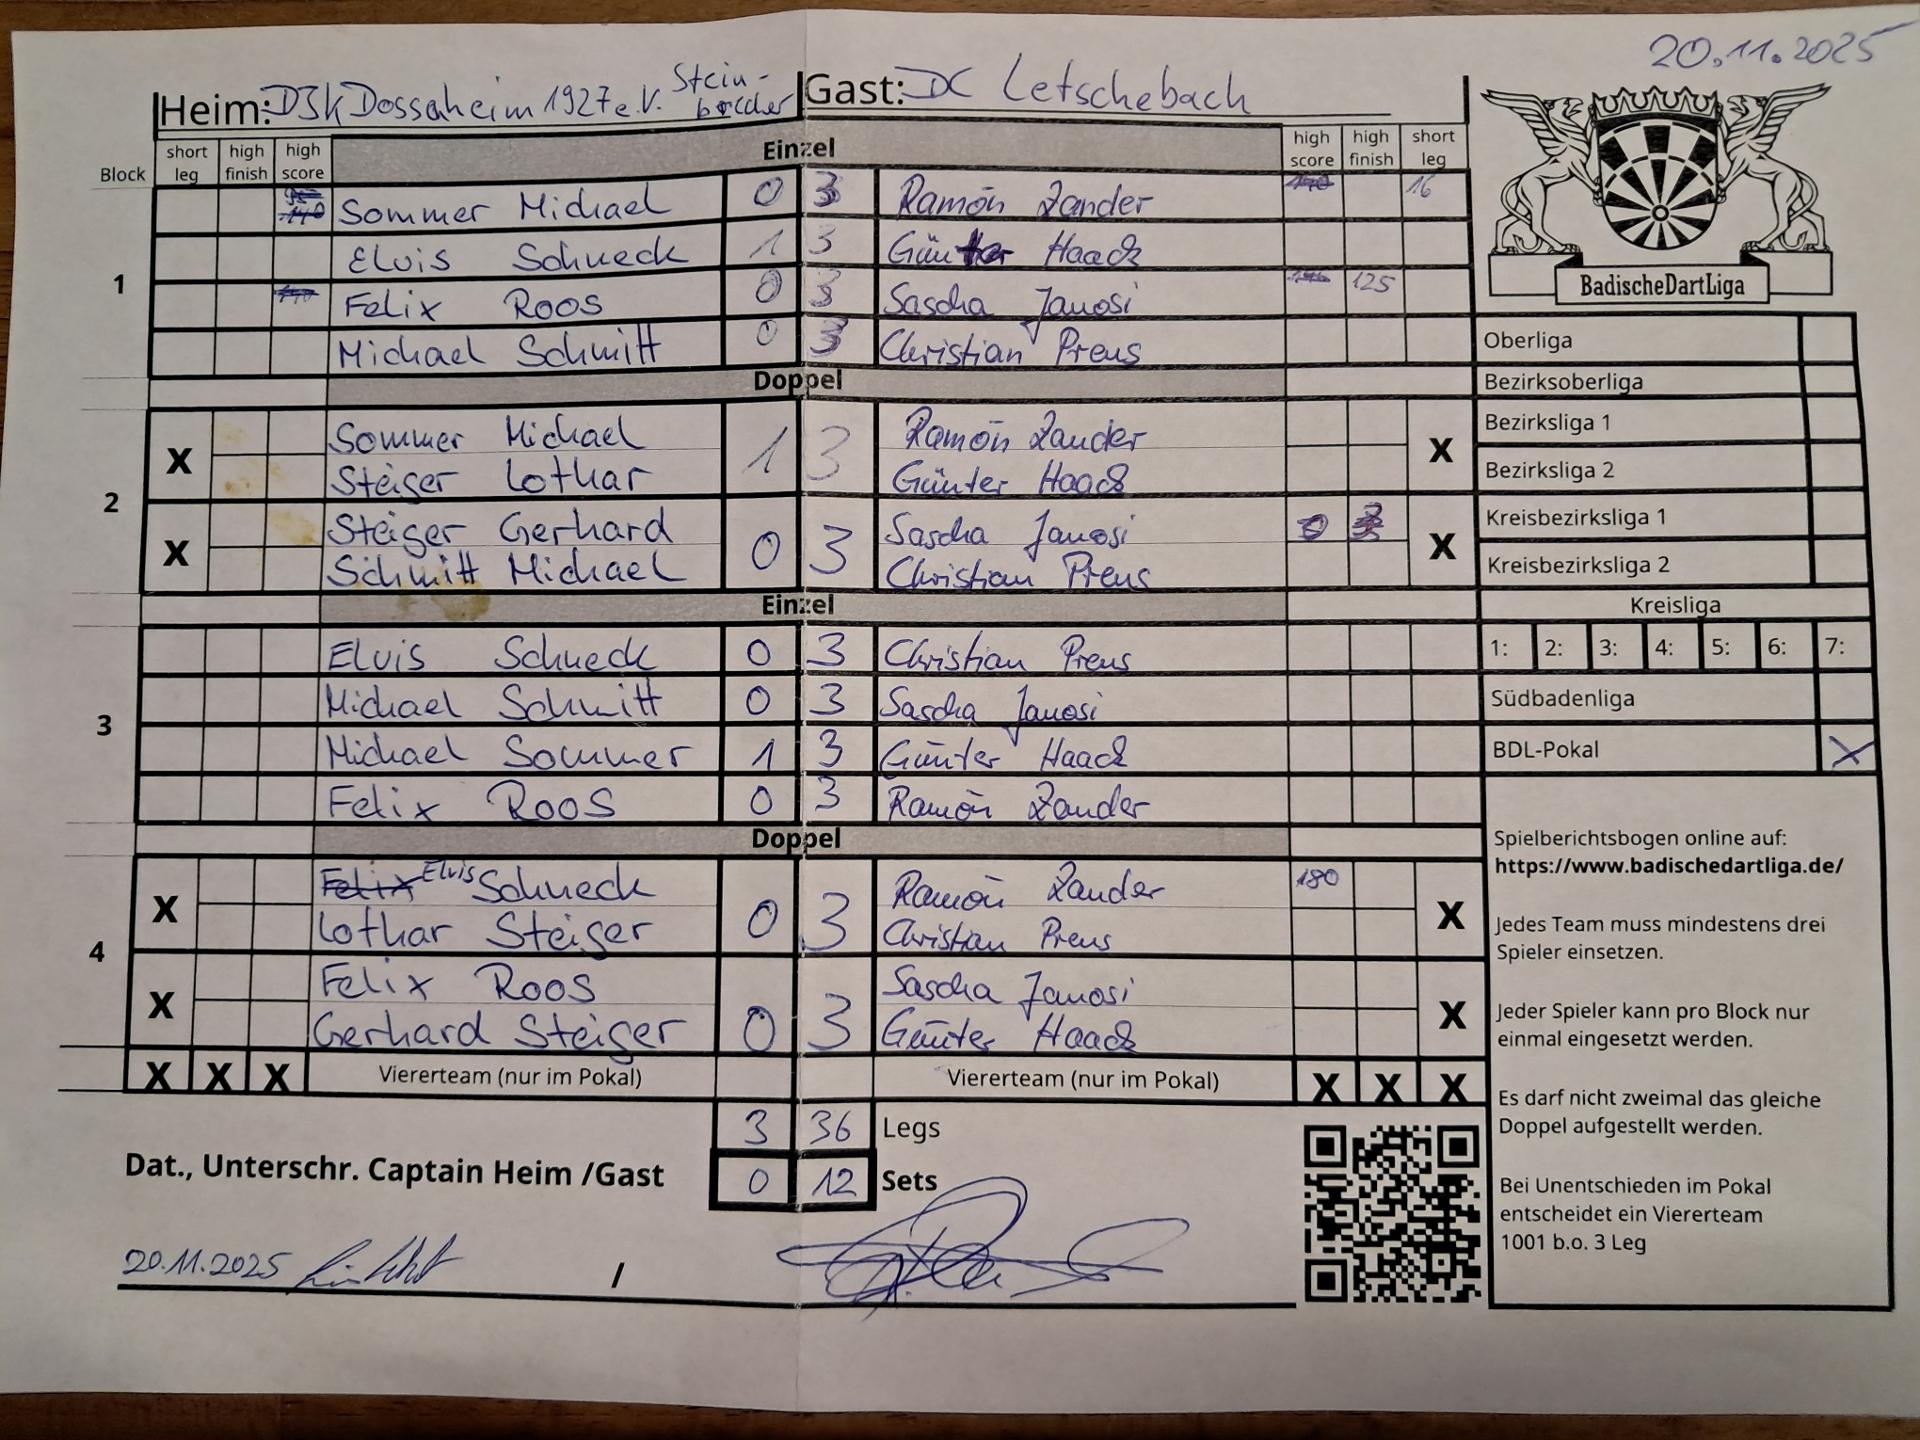 20.11.2025
Heim: DJK Dossenheim 1927 e.V. Stein-
brecher
Gast: DC Letschebach
Block short leg high finish high score Einzel high score high finish short leg
1
Sommer Michael 0 3 Ramón Zander 16
Elvis Schneck 1 3 Günter Haack
Felix Roos 0 3 Sascha Janosi 125
Michael Schmitt 0 3 Christian Preus
Doppel
2
X Sommer Michael 1 3 Ramón Zander X
Steiger Lothar Günter Haack
X Steiger Gerhard 0 3 Sascha Janosi X
Schmitt Michael Christian Preus
Einzel
3
Elvis Schneck 0 3 Christian Preus
Michael Schmitt 0 3 Sascha Janosi
Michael Sommer 1 3 Günter Haack
Felix Roos 0 3 Ramón Zander
Doppel
4
X Felix Elvis Schneck 0 3 Ramón Zander 180 X
Lothar Steiger Christian Preus
X Felix Roos 0 3 Sascha Janosi X
Gerhard Steiger Günter Haack
X X X Viererteam (nur im Pokal) Viererteam (nur im Pokal) X X X
3 36 Legs
Dat., Unterschr. Captain Heim /Gast 0 12 Sets
20.11.2025 /
BadischeDartLiga
Oberliga
Bezirksoberliga
Bezirksliga 1
Bezirksliga 2
Kreisbezirksliga 1
Kreisbezirksliga 2
Kreisliga
1: 2: 3: 4: 5: 6: 7:
Südbadenliga
BDL-Pokal X
Spielberichtsbogen online auf:
https://www.badischedartliga.de/
Jedes Team muss mindestens drei
Spieler einsetzen.
Jeder Spieler kann pro Block nur
einmal eingesetzt werden.
Es darf nicht zweimal das gleiche
Doppel aufgestellt werden.
Bei Unentschieden im Pokal
entscheidet ein Viererteam
1001 b.o. 3 Leg